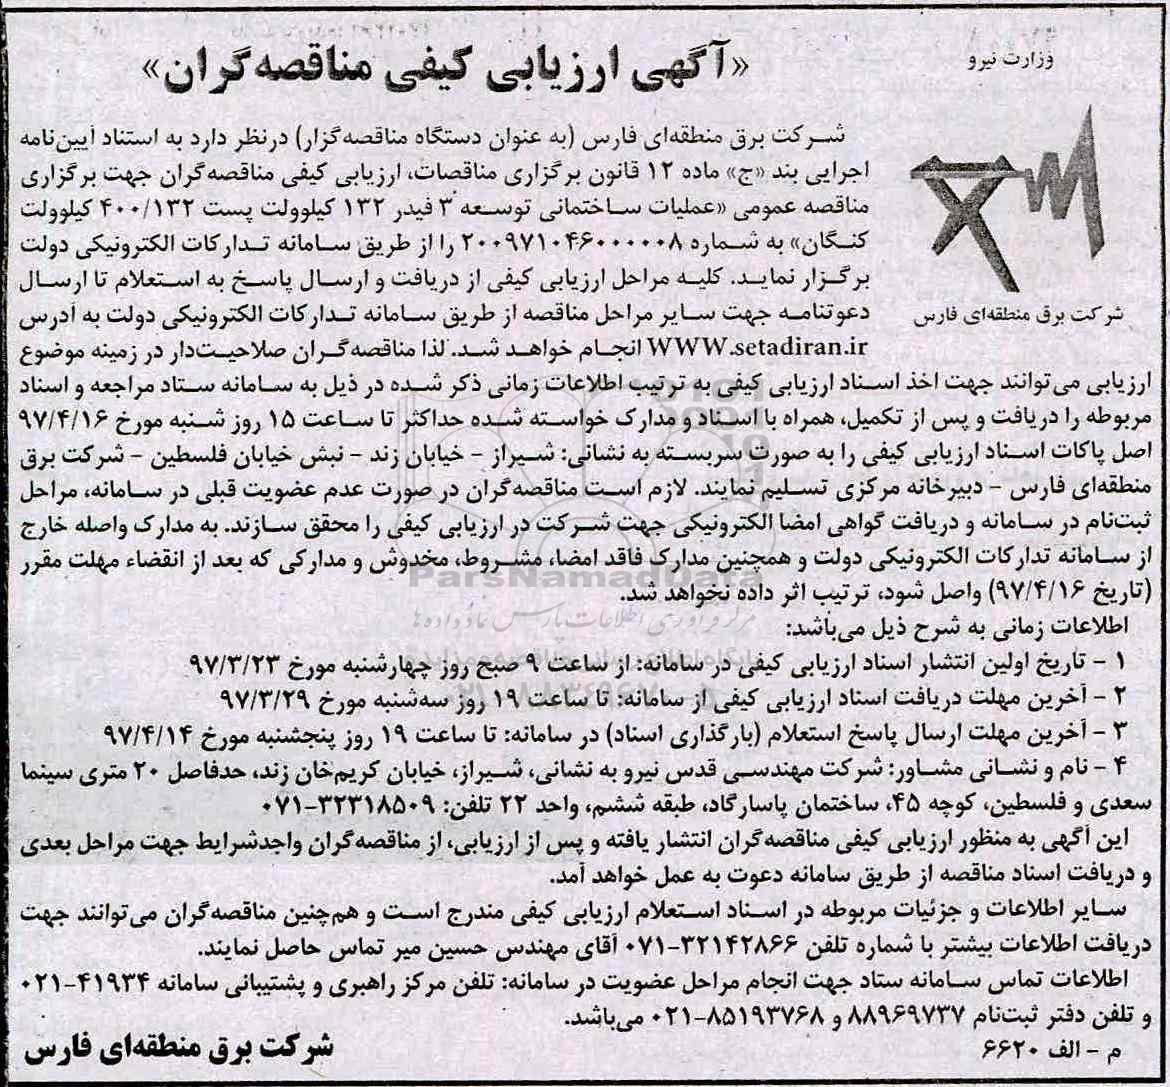 وزارت نیرو
شرکت برق منطقه‌ای فارس
«آگهی ارزیابی کیفی مناقصه‌گران»
شرکت برق منطقه‌ای فارس (به عنوان دستگاه مناقصه‌گزار) درنظر دارد به استناد آیین‌نامه
اجرایی بند «ج» ماده ۱۲ قانون برگزاری مناقصات، ارزیابی کیفی مناقصه‌گران جهت برگزاری
مناقصه عمومی «عملیات ساختمانی توسعه ۳ فیدر ۱۳۲ کیلوولت پست ۴۰۰/۱۳۲ کیلوولت
کنگان» به شماره ۲۰۰۹۷۱۰۴۶۰۰۰۰۰۸ را از طریق سامانه تدارکات الکترونیکی دولت
برگزار نماید. کلیه مراحل ارزیابی کیفی از دریافت و ارسال پاسخ به استعلام تا ارسال
دعوتنامه جهت سایر مراحل مناقصه از طریق سامانه تدارکات الکترونیکی دولت به آدرس
WWW.setadiran.ir انجام خواهد شد. لذا مناقصه‌گران صلاحیت‌دار در زمینه موضوع
ارزیابی می‌توانند جهت اخذ اسناد ارزیابی کیفی به ترتیب اطلاعات زمانی ذکر شده در ذیل به سامانه ستاد مراجعه و اسناد
مربوطه را دریافت و پس از تکمیل، همراه با اسناد و مدارک خواسته شده حداکثر تا ساعت ۱۵ روز شنبه مورخ ۹۷/۴/۱۶
اصل پاکات اسناد ارزیابی کیفی را به صورت سربسته به نشانی: شیراز - خیابان زند - نبش خیابان فلسطین - شرکت برق
منطقه‌ای فارس - دبیرخانه مرکزی تسلیم نمایند. لازم است مناقصه‌گران در صورت عدم عضویت قبلی در سامانه، مراحل
ثبت‌نام در سامانه و دریافت گواهی امضا الکترونیکی جهت شرکت در ارزیابی کیفی را محقق سازند. به مدارک واصله خارج
از سامانه تدارکات الکترونیکی دولت و همچنین مدارک فاقد امضا، مشروط، مخدوش و مدارکی که بعد از انقضاء مهلت مقرر
(تاریخ ۹۷/۴/۱۶) واصل شود، ترتیب اثر داده نخواهد شد.
ParsNamadData
اطلاعات زمانی به شرح ذیل می‌باشد:
۱ - تاریخ اولین انتشار اسناد ارزیابی کیفی در سامانه: از ساعت ۹ صبح روز چهارشنبه مورخ ۹۷/۳/۲۳
۲ - آخرین مهلت دریافت اسناد ارزیابی کیفی از سامانه: تا ساعت ۱۹ روز سه‌شنبه مورخ ۹۷/۳/۲۹
۳ - آخرین مهلت ارسال پاسخ استعلام (بارگذاری اسناد) در سامانه: تا ساعت ۱۹ روز پنجشنبه مورخ ۹۷/۴/۱۴
۴ - نام و نشانی مشاور: شرکت مهندسی قدس نیرو به نشانی، شیراز، خیابان کریم‌خان زند، حدفاصل ۲۰ متری سینما
سعدی و فلسطین، کوچه ۴۵، ساختمان پاسارگاد، طبقه ششم، واحد ۲۲ تلفن: ۳۲۳۱۸۵۰۹-۰۷۱
این آگهی به منظور ارزیابی کیفی مناقصه‌گران انتشار یافته و پس از ارزیابی، از مناقصه‌گران واجدشرایط جهت مراحل بعدی
و دریافت اسناد مناقصه از طریق سامانه دعوت به عمل خواهد آمد.
سایر اطلاعات و جزئیات مربوطه در اسناد استعلام ارزیابی کیفی مندرج است و هم‌چنین مناقصه‌گران می‌توانند جهت
دریافت اطلاعات بیشتر با شماره تلفن ۳۲۱۴۲۸۶۶-۰۷۱ آقای مهندس حسین میر تماس حاصل نمایند.
اطلاعات تماس سامانه ستاد جهت انجام مراحل عضویت در سامانه: تلفن مرکز راهبری و پشتیبانی سامانه ۴۱۹۳۴-۰۲۱
و تلفن دفتر ثبت‌نام ۸۸۹۶۹۷۳۷ و ۸۵۱۹۳۷۶۸-۰۲۱ می‌باشد.
م - الف ۶۶۲۰
شرکت برق منطقه‌ای فارس